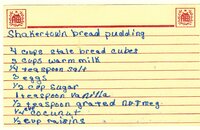 Shakertown bread pudding
4 cups stale bread cubes
3 cups warm milk
1/4 teaspoon salt
2 eggs
1/2 cup sugar
1 teaspoon vanilla
1/2 teaspoon grated nutmeg
1/4 cup coconut
1/2 cup raisins